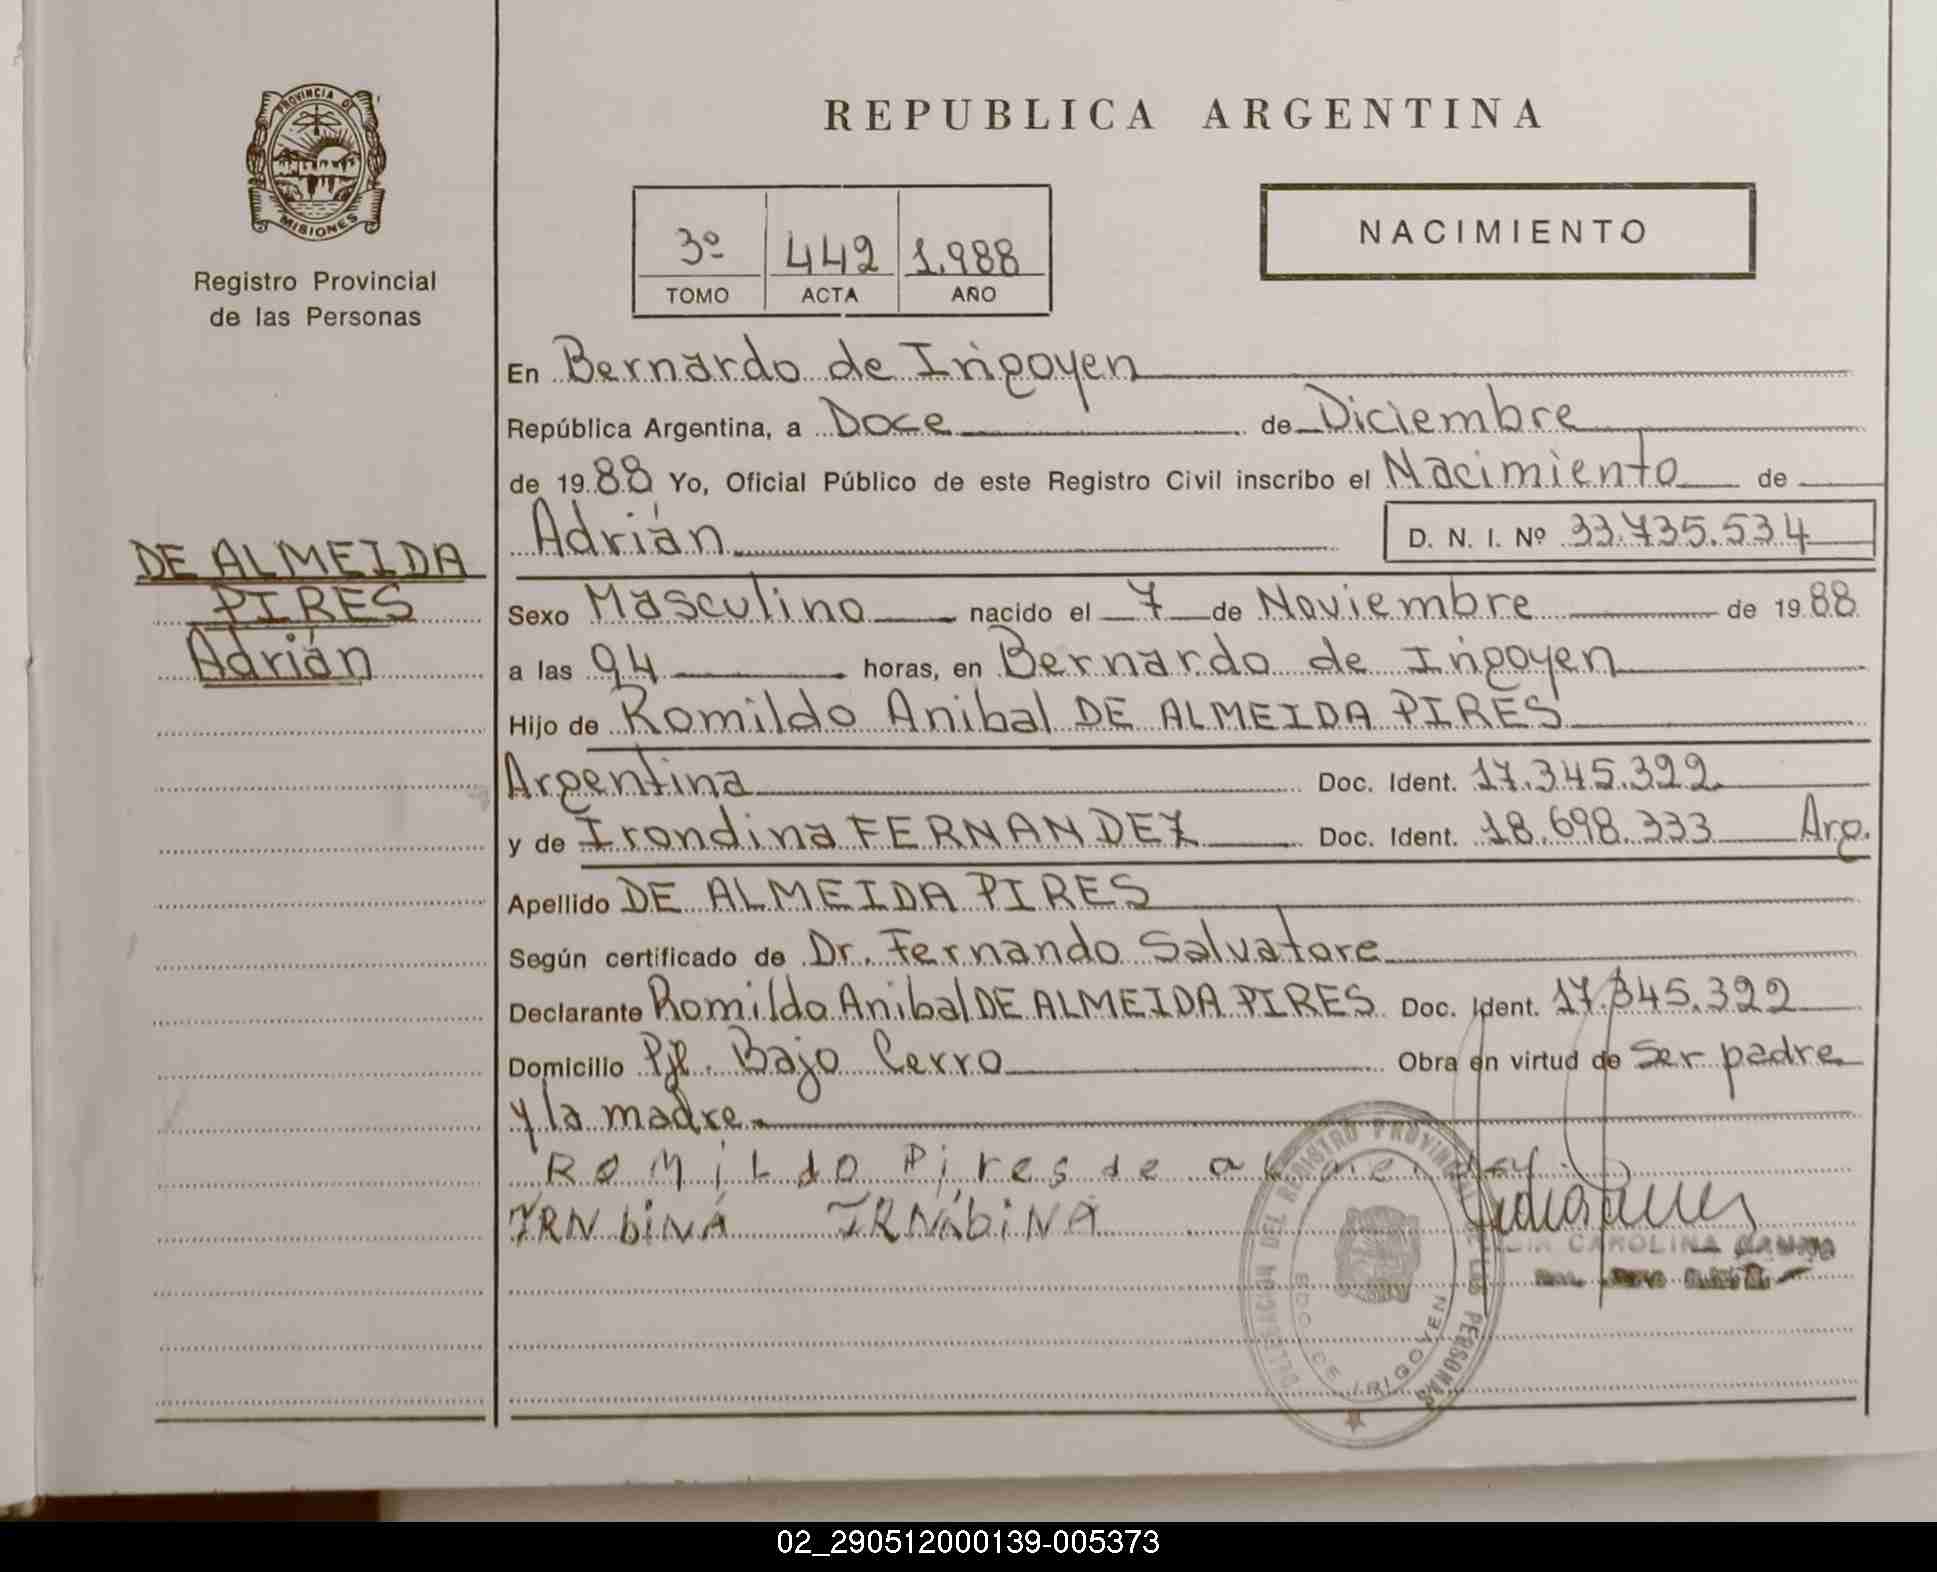 PROVINCIA DE
MISIONES
Registro Provincial
de las Personas
DE ALMEIDA
PIRES
Adrián
REPUBLICA ARGENTINA
3º 442 1.988
TOMO ACTA AÑO
NACIMIENTO
En Bernardo de Irigoyen
República Argentina, a Doce de Diciembre
de 1988 Yo, Oficial Público de este Registro Civil inscribo el Nacimiento de
Adrián D. N. I. Nº 33.735.534
Sexo Masculino nacido el 7 de Noviembre de 1988
a las 04 horas, en Bernardo de Irigoyen
Hijo de Romildo Anibal DE ALMEIDA PIRES
Argentina Doc. Ident. 17.345.322
y de Irondina FERNANDEZ Doc. Ident. 18.698.333 Arg.
Apellido DE ALMEIDA PIRES
Según certificado de Dr. Fernando Salvatore
Declarante Romildo Anibal DE ALMEIDA PIRES Doc. Ident. 17.345.322
Domicilio Pje. Bajo Cerro Obra en virtud de Ser padre
y la madre
ROMiLdO Pires de
IRNbiNA IRNAbiNA
DELEGACION DEL REGISTRO PROVINCIAL DE LAS PERSONAS
BDO. DE IRIGOYEN
CAROLINA
02_290512000139-005373